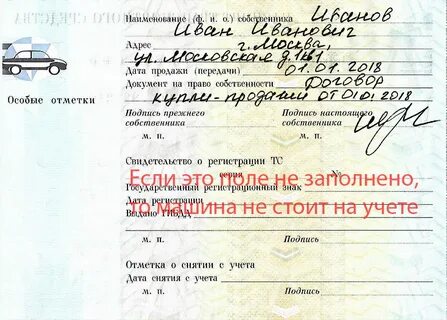 Наименование (ф. и. о.) собственника Иванов
Иван Иванович
Адрес г. Москва,
ул. Московская д.1 кв1
Дата продажи (передачи) 01.01.2018
Документ на право собственности Договор
купли-продажи от 01.01.2018
Особые отметки
Подпись прежнего собственника
Подпись настоящего собственника
М. П. М. П.
Свидетельство о регистрации ТС
серия №
Если это поле не заполнено,
Государственный регистрационный знак
то машина не стоит на учете
Дата регистрации
Выдано ГИБДД
М. П. Подпись
Отметка о снятии с учета
Дата снятия с учета
М. П. Подпись